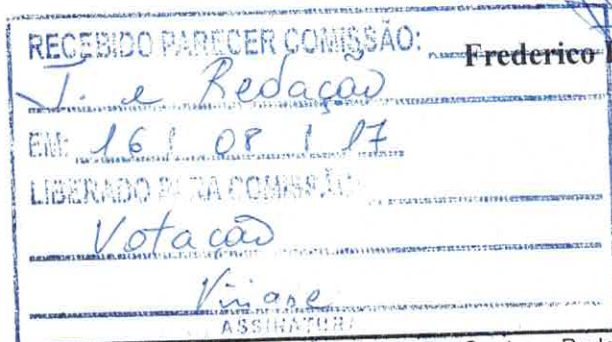 RECEBIDO PARECER COMISSÃO:
Frederico
J. e Redação
EM: 16 / 08 / 17
LIBERADO PARA COMISSÃO:
Votação
ASSINATURA